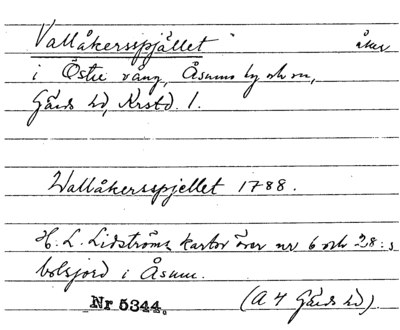 Vallåkersspjället åker
i Östre vång, Åsums by och sn,
Gärds hd, Krstd. l.
Wallåkersspjellet 1788.
H. L. Lidströms kartor över nr 6 och 28:s
bolsjord i Åsum.
Nr 5344. (A 4 Gärds hd).